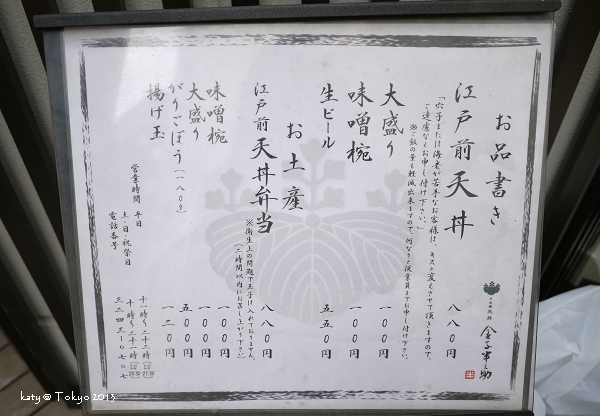 お品書き
江戸前天丼 八八〇円
「穴子または海老が苦手なお客様は、キスと変えさせて頂きますので、
ご遠慮なくお申し付け下さい。」
※ご飯の量も軽減出来ますので、何なりと従業員までお申し付け下さい。
大盛り 一〇〇円
味噌椀 一〇〇円
生ビール 五五〇円
お土産
江戸前天丼弁当 八八〇円
※衛生上の問題で玉子は入れておりません。
(二時間以内にお召し上がり下さい)
味噌椀 一〇〇円
大盛り 一〇〇円
がりごぼう(一八〇g) 五〇〇円
揚げ玉 一二〇円
営業時間 平日 十一時〜二十二時
土・日・祝祭日 十時〜二十一時
電話番号 三二四三-〇七〇七
金子半之助
katy @ Tokyo 2013